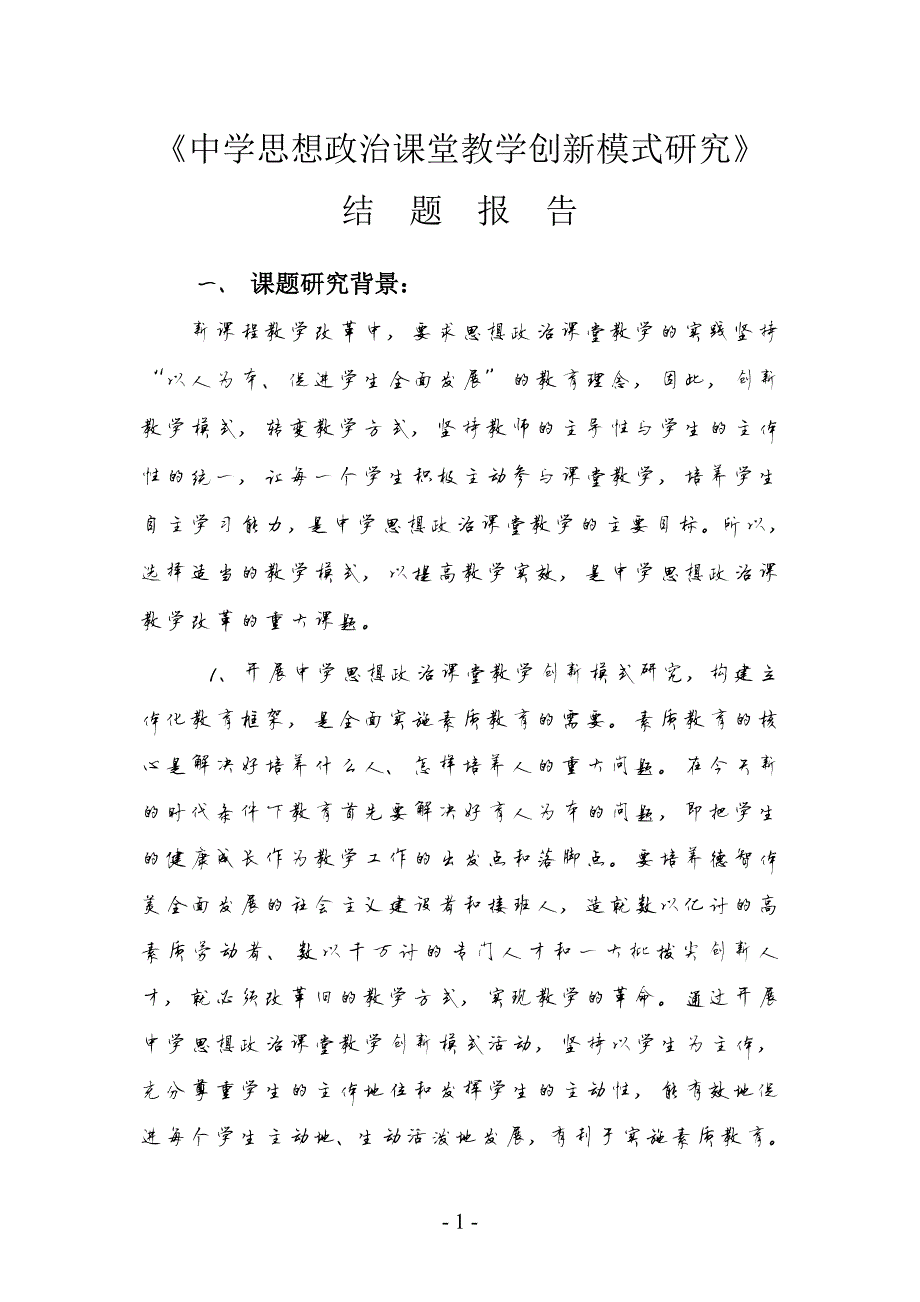 《中学思想政治课堂教学创新模式研究》
结 题 报 告
一、 课题研究背景：
新课程教学改革中，要求思想政治课堂教学的实践坚持
“以人为本、促进学生全面发展”的教育理念，因此，创新
教学模式，转变教学方式，坚持教师的主导性与学生的主体
性的统一，让每一个学生积极主动参与课堂教学，培养学生
自主学习能力，是中学思想政治课堂教学的主要目标。所以，
选择适当的教学模式，以提高教学实效，是中学思想政治课
教学改革的重大课题。
1、开展中学思想政治课堂教学创新模式研究，构建立
体化教育框架，是全面实施素质教育的需要。素质教育的核
心是解决好培养什么人、怎样培养人的重大问题。在今天新
的时代条件下教育首先要解决好育人为本的问题，即把学生
的健康成长作为教学工作的出发点和落脚点。要培养德智体
美全面发展的社会主义建设者和接班人，造就数以亿计的高
素质劳动者、数以千万计的专门人才和一大批拔尖创新人
才，就必须改革旧的教学方式，实现教学的革命。通过开展
中学思想政治课堂教学创新模式活动，坚持以学生为主体，
充分尊重学生的主体地位和发挥学生的主动性，能有效地促
进每个学生主动地、生动活泼地发展，有利于实施素质教育。
- 1 -